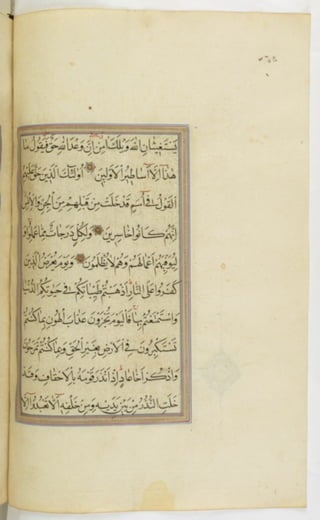 يستغيثان الله ويلك امن ان وعد الله حق فيقول ما
هذا الا اساطير الاولين اولئك الذين حق عليهم
القول في امم قد خلت من قبلهم من الجن والانس
انهم كانوا خاسرين ولكل درجات مما عملوا و
ليوفيهم اعمالهم وهم لا يظلمون ويوم يعرض الذين
كفروا على النار اذهبتم طيباتكم في حيوتكم الدنيا
واستمتعتم بها فاليوم تجزون عذاب الهون بما كنتم
تستكبرون في الارض بغير الحق وبما كنتم تفسقون
واذكر اخا عاد اذ انذر قومه بالاحقاف وقد
خلت النذر من بين يديه ومن خلفه الا تعبدوا الا